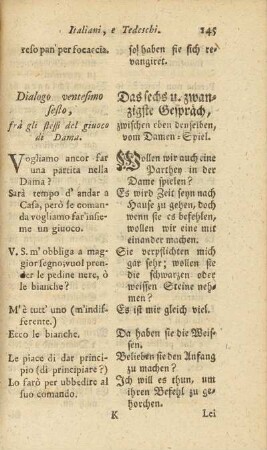 Italiani, e Tedeschi. 145
reso pan per focaccia.
Dialogo ventesimo
sesto,
frà gli stessi del giuoco
di Dama.
Vogliamo ancor far
una partita nella
Dama?
Sarà tempo d'andar a
Casa, però se comanda vogliamo far'insieme
un giuoco.
V. S. m'obbliga a maggior
segno, vuol prender
le pedine nere, ò
le bianche?
M'è tutt' uno (m'indifferente.)
Ecco le bianche.
Le piace di dar principio
(di principiare?)
Lo farò per ubbedire al
suo comando.
sol haben sie sich revangiret.
Das sechs u. zwanzigste
Gespräch,
zwischen eben denselben,
vom Damen-Spiel.
Wollen wir auch eine
Parthey in der
Dame spielen?
Es wird Zeit seyn nach
Hause zu gehen, doch
wenn sie es befehlen,
wollen wir eine mit
einander machen.
Sie verpflichten mich
gar sehr; wollen sie
die schwarzen oder
weissen Steine nehmen?
Es ist mir gleich viel.
Da haben sie die Weissen.
Belieben sie den Anfang
zu machen?
Ich will es thun, um
ihren Befehl zu gehorchen.
K Lei